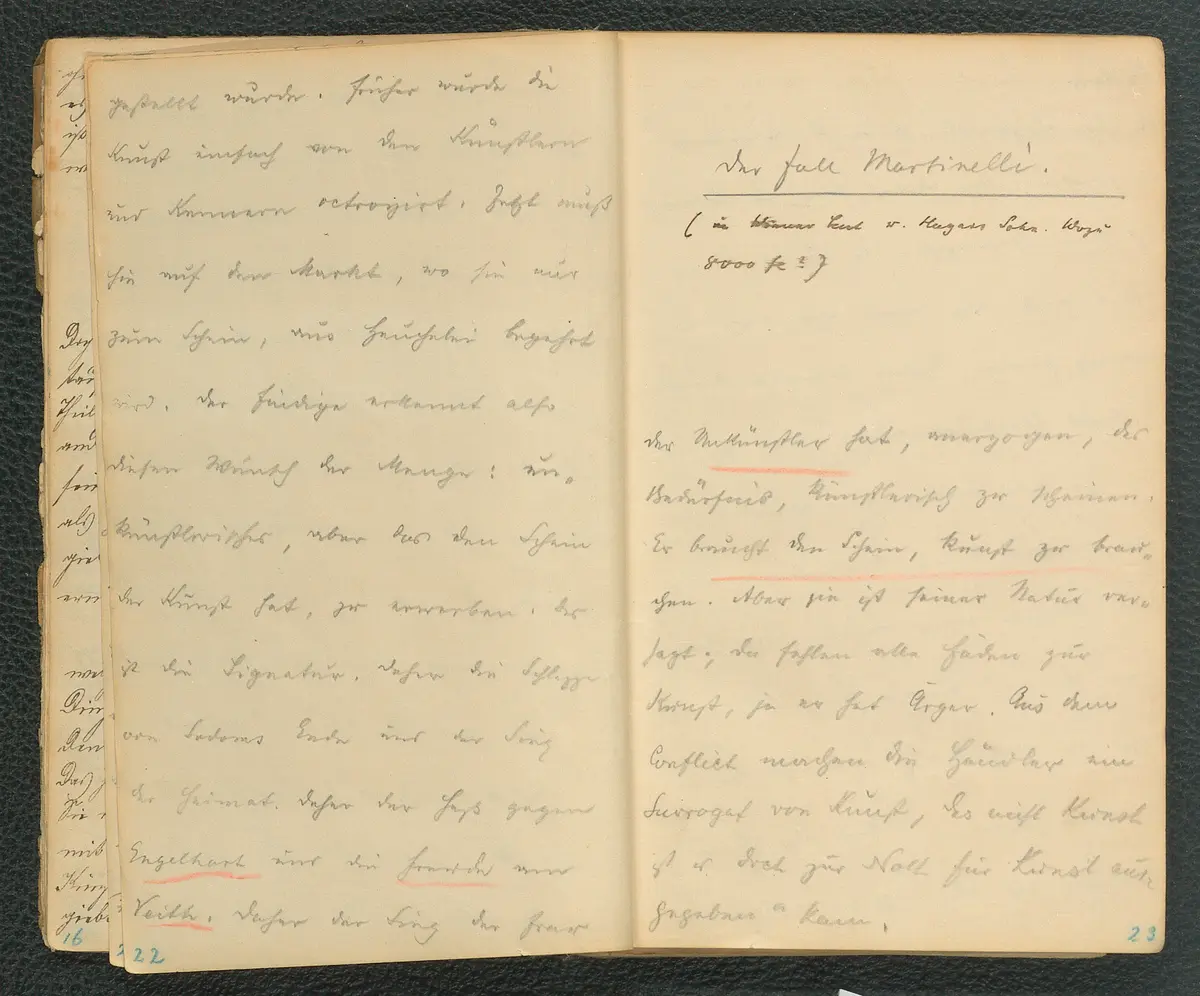 gestellt wurde. Früher wurde die
Kunst einfach von den Künstlern
und Kennern octroyirt. Jetzt muß
sie auf den Markt, wo sie nur
zum Schein, aus Heuchelei begehrt
wird. Der Findige erkennt also
diesen Wunsch der Menge: un-
künstlerisches, aber das den Schein
der Kunst hat, zu erwerben. Das
ist die Signatur. Daher die Schlappe
von Sodoms Ende und der Sieg
der Heimat. Daher der Haß gegen
Engelhart und die Freude am
Veith. Daher der Sieg der Frau
22
16
Der Fall Martinelli.
8000 fr?)
der Unkünstler hat, anerzogen, das
Bedürfnis, künstlerisch zu scheinen.
Er braucht den Schein, Kunst zu brau-
chen. Aber sie ist seiner Natur ver-
sagt; da fehlen alle Fäden zur
Kunst, ja er hat Ärger. Aus dem
Conflict machen die Händler ein
Surrogat von Kunst, das nicht Kunst
ist u. doch zur Noth für Kunst aus-
gegeben kann.
23